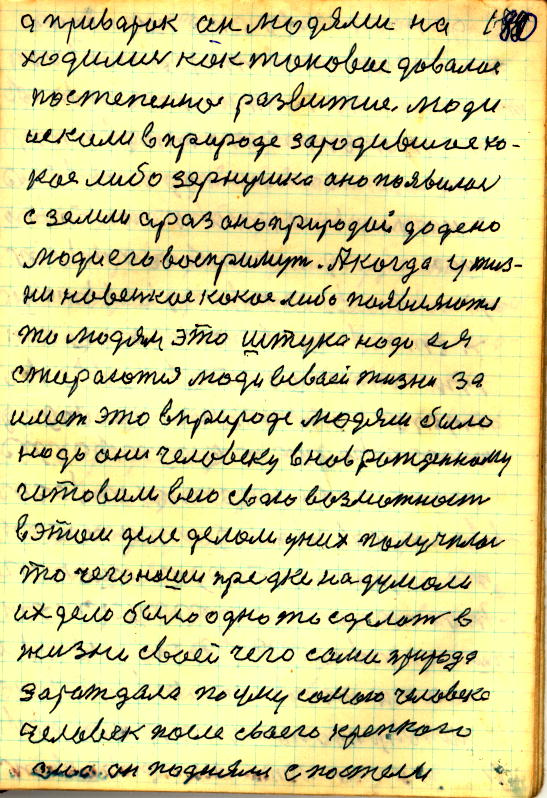 а приварок он людями на
ходился как таковое довалос
постепенное развитие. люди
искали в природе зародившиеся ка-
кое либо зернушка оно появилос
с земли араз оно природой додено
люди его воспримут. А когда у жиз-
ни новенькое какое либо появляются
то людям это штука надо ея
стараются люди в своей жизни за
имет это в природе людям было
надо они человеку вноврожденному
готовили всю свою возможност
в этом деле делали у них получилос
то чего наши предки надумали
их дело было одно то сделат в
жизни своей чего сама природа
зарождала по уму самого человека
человек после своего крепкого
сна он поднялся с постели